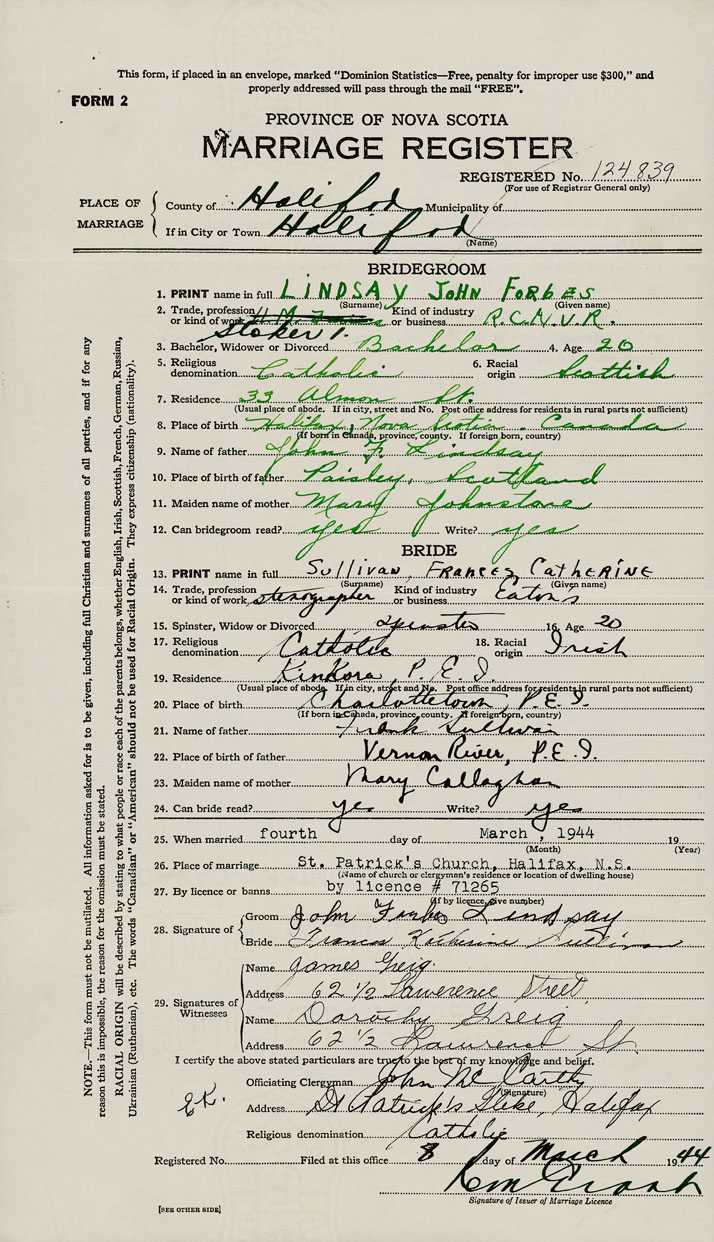 This form, if placed in an envelope, marked “Dominion Statistics—Free, penalty for improper use $300,” and
properly addressed will pass through the mail “FREE”.
FORM 2
PROVINCE OF NOVA SCOTIA
MARRIAGE REGISTER
REGISTERED No. 124839
(For use of Registrar General only)
PLACE OF MARRIAGE
County of Halifax Municipality of
If in City or Town Halifax
(Name)
BRIDEGROOM
1. PRINT name in full LINDSAY JOHN FORBES
(Surname) (Given name)
2. Trade, profession or kind of work Stoker 1. Kind of industry or business R.C.N.V.R.
3. Bachelor, Widower or Divorced Bachelor 4. Age 20
5. Religious denomination Catholic 6. Racial origin Scottish
7. Residence 33 Almon St.
(Usual place of abode. If in city, street and No. Post office address for residents in rural parts not sufficient)
8. Place of birth Halifax, Nova Scotia. Canada
(If born in Canada, province, county. If foreign born, country)
9. Name of father John F. Lindsay
10. Place of birth of father Paisley, Scotland
11. Maiden name of mother Mary Johnstone
12. Can bridegroom read? yes Write? yes
BRIDE
13. PRINT name in full Sullivan, Frances, Catherine
(Surname) (Given name)
14. Trade, profession or kind of work stenographer Kind of industry or business Eaton's
15. Spinster, Widow or Divorced Spinster 16. Age 20
17. Religious denomination Catholic 18. Racial origin Irish
19. Residence Kinkora, P.E.I.
(Usual place of abode. If in city, street and No. Post office address for residents in rural parts not sufficient)
20. Place of birth Charlottetown, P.E.I.
(If born in Canada, province, county. If foreign born, country)
21. Name of father Frank Sullivan
22. Place of birth of father Vernon River, P.E.I.
23. Maiden name of mother Mary Callaghan
24. Can bride read? yes Write? yes
25. When married fourth day of March, 1944 19
(Month) (Year)
26. Place of marriage St. Patrick's Church, Halifax, N.S.
(Name of church or clergyman's residence or location of dwelling house)
27. By licence or banns by licence # 71265
(If by licence, give number)
28. Signature of
Groom John Forbes Lindsay
Bride Frances Katherine Sullivan
29. Signatures of Witnesses
Name James Greig
Address 62 1/2 Lawerence Street
Name Dorothy Greig
Address 62 1/2 Lawrence St.
I certify the above stated particulars are true to the best of my knowledge and belief.
Officiating Clergyman John Mc Carthy
(Signature)
Address St Patrick's Glebe, Halifax
Religious denomination Catholic
Registered No. Filed at this office 8 day of March 1944
Signature of Issuer of Marriage Licence
[SEE OTHER SIDE]
NOTE.—This form must not be mutilated. All information asked for is to be given, including full Christian and surnames of all parties, and if for any
reason this is impossible, the reason for the omission must be stated.
RACIAL ORIGIN will be described by stating to what people or race each of the parents belongs, whether English, Irish, Scottish, French, German, Russian,
Ukrainian (Ruthenian), etc. The words “Canadian” or “American” should not be used for Racial Origin. They express citizenship (nationality).